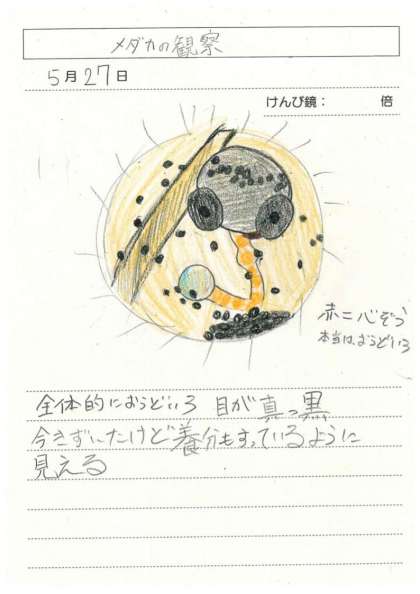 メダカの観察
5月27日
けんび鏡：　　　倍
赤＝心ぞう
本当は、おうどいろ
全体的におうどいろ 目が真っ黒
今きずいたけど養分もすっているように
見える